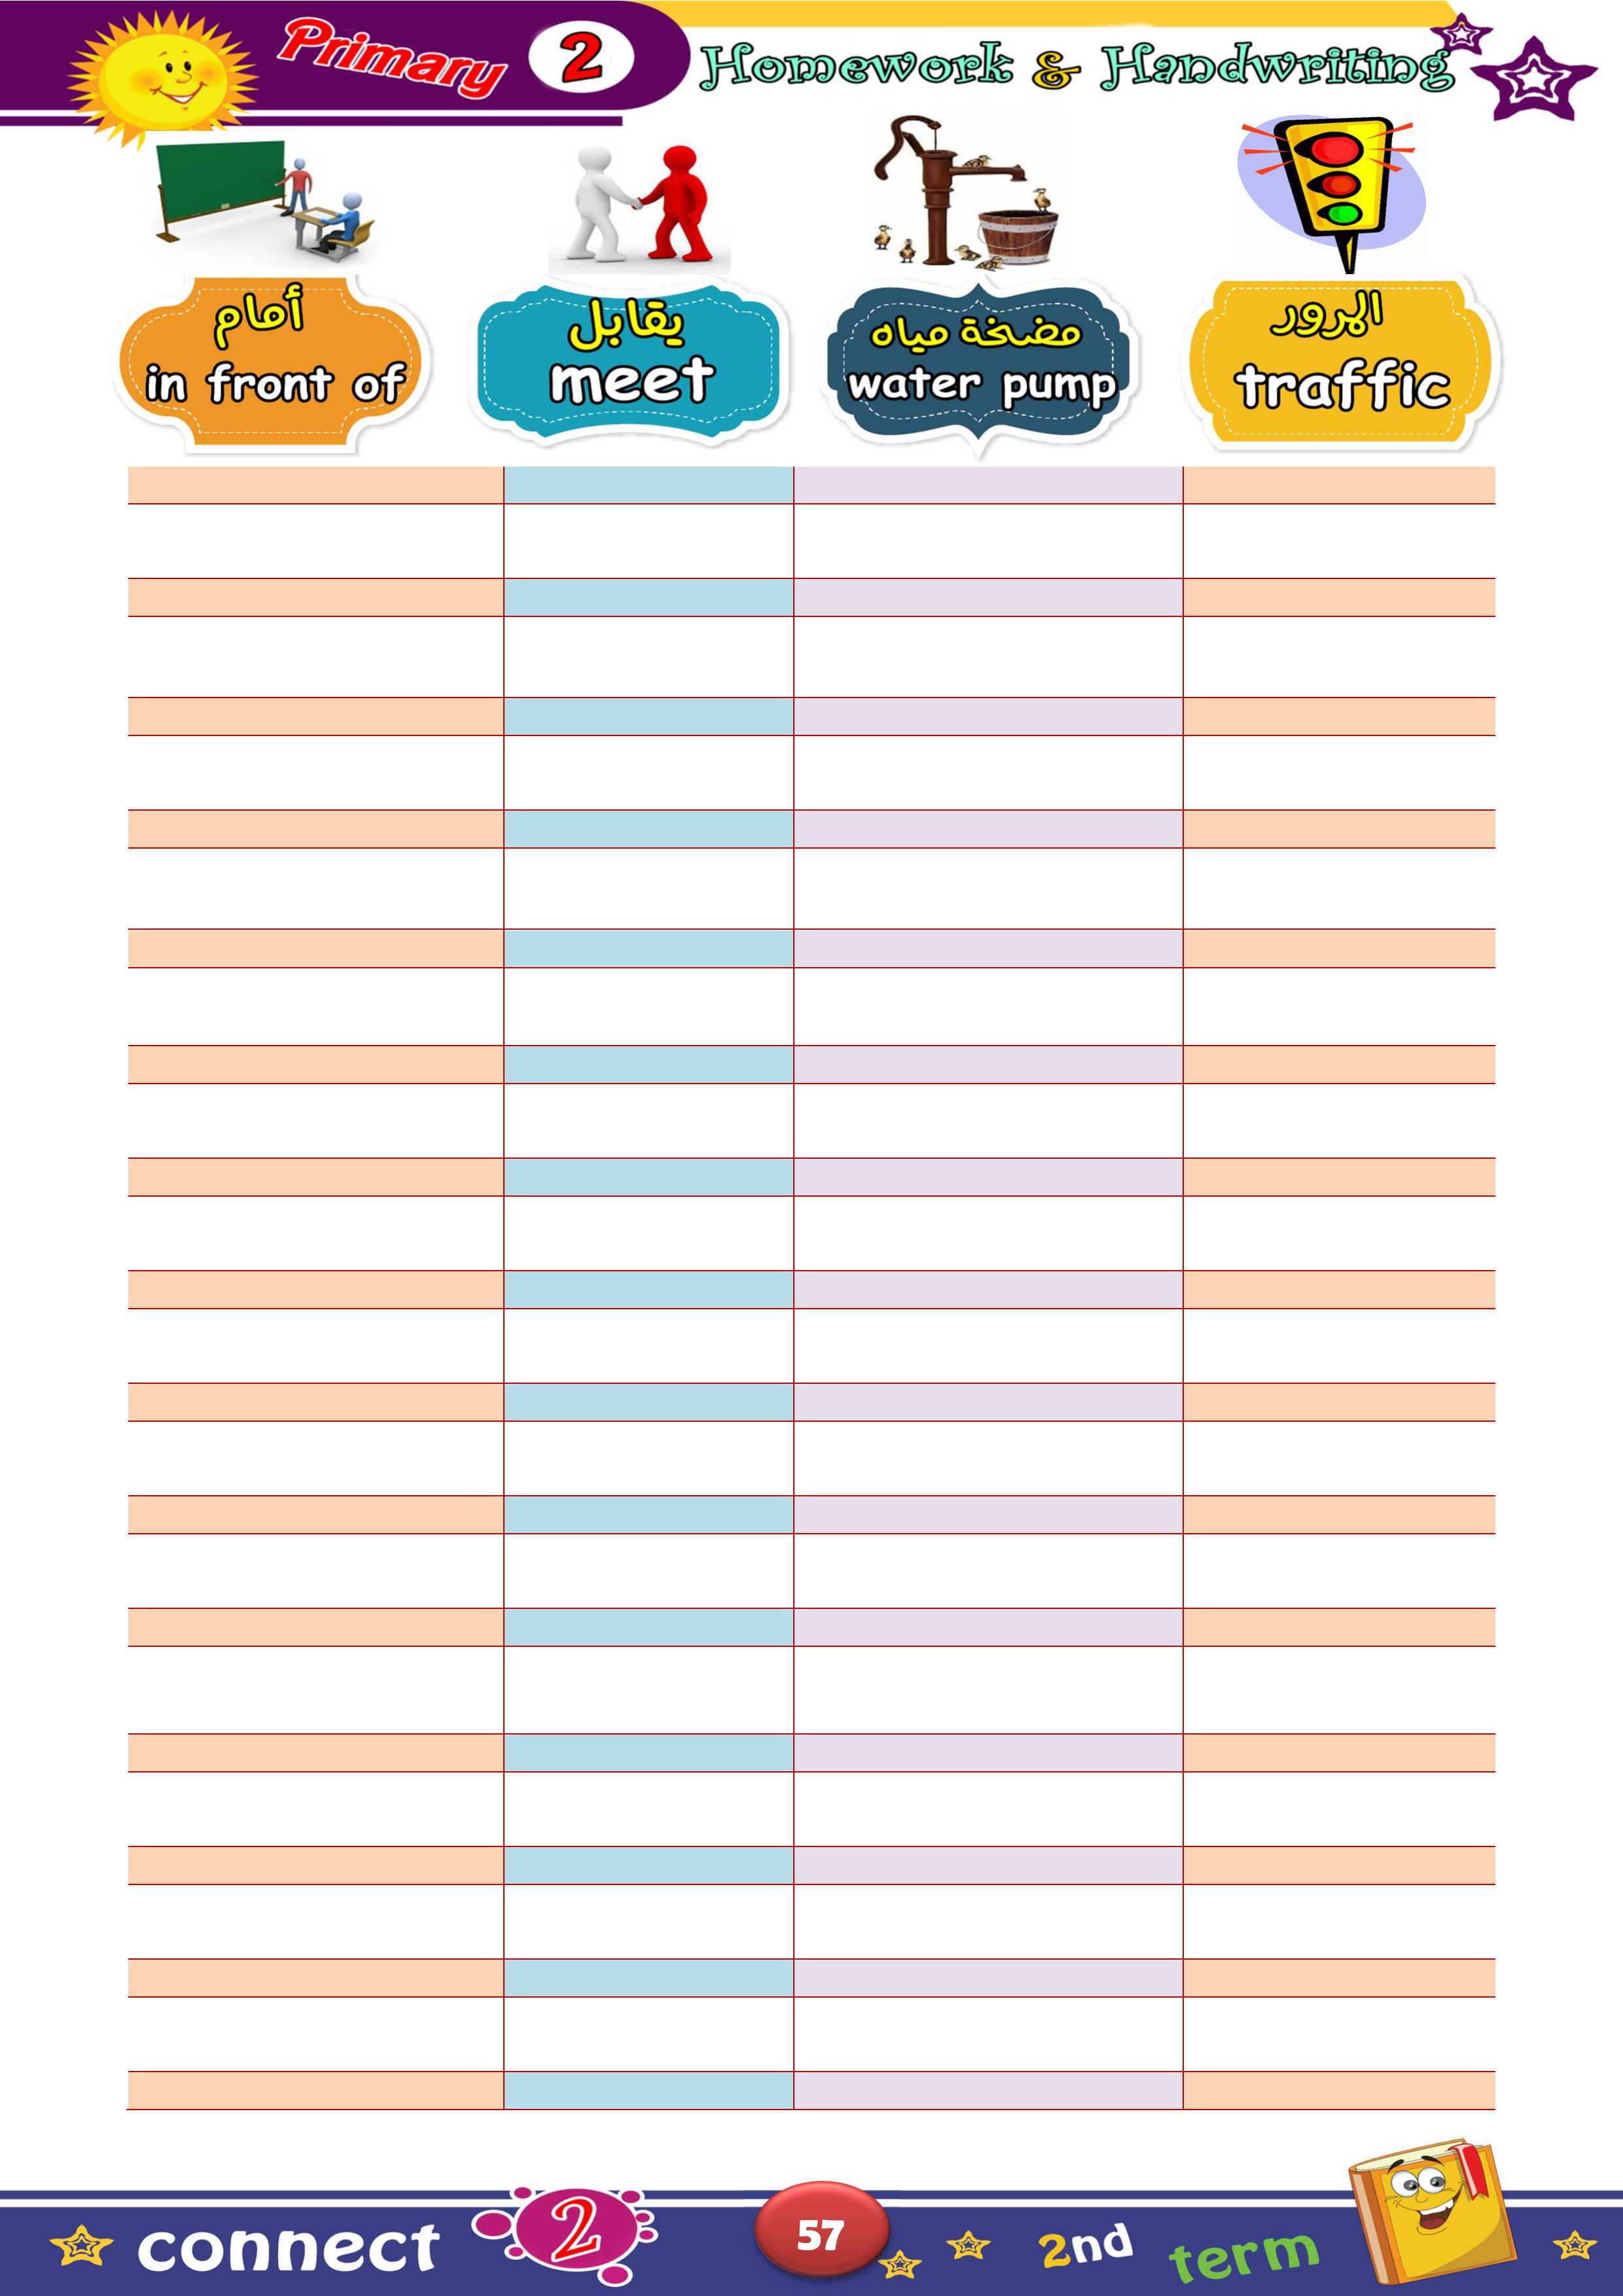 Primary 2 Homework & Handwriting
أمام
in front of
يقابل
meet
مضخة مياه
water pump
المرور
traffic
connect 2 57 2nd term